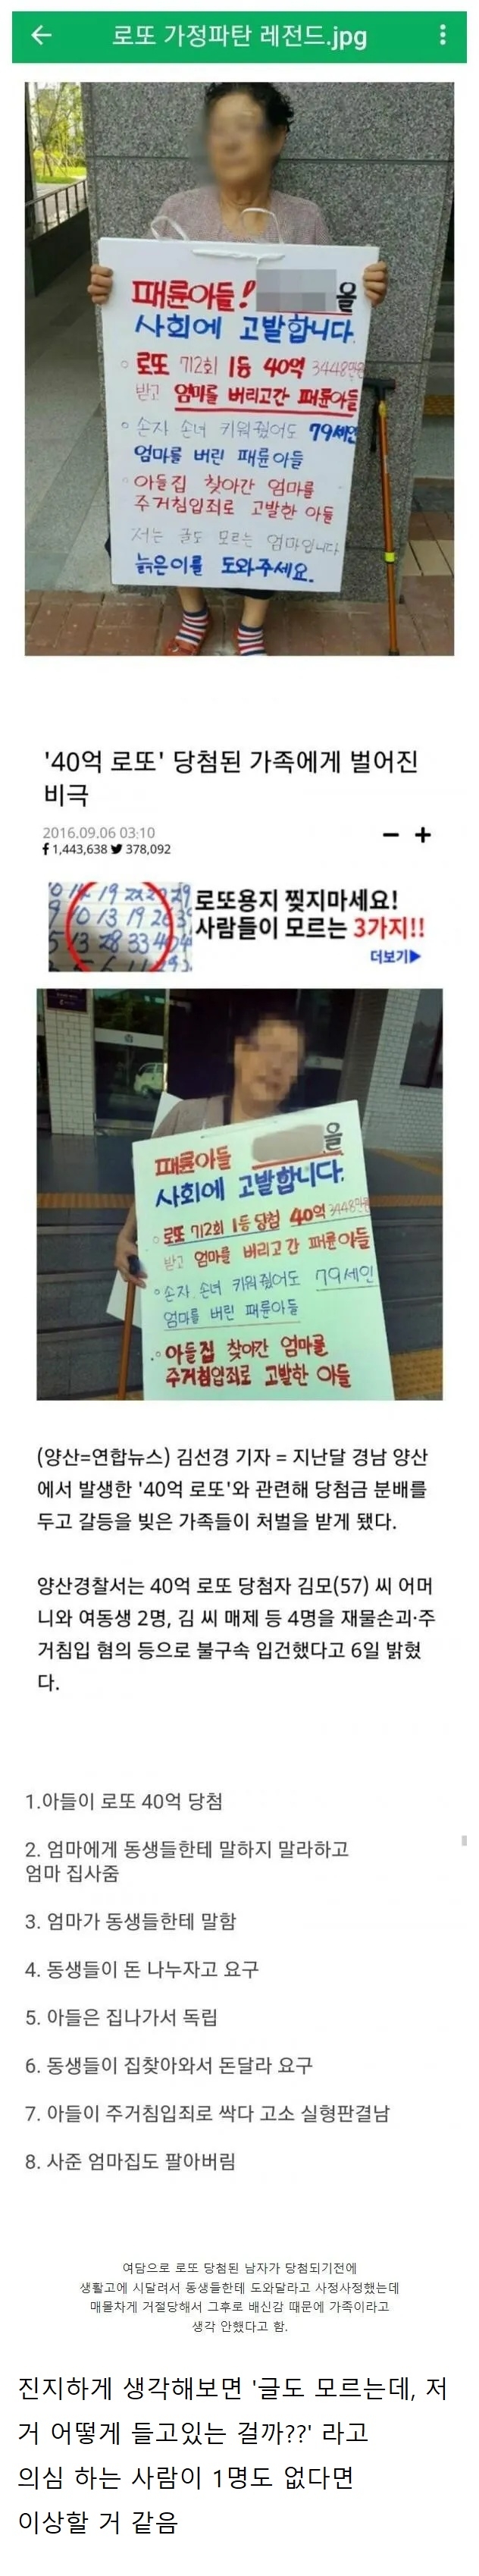 로또 가정파탄 레전드.jpg
패륜아들! 을
사회에 고발합니다.
로또 712회 1등 40억 3448만원
받고 엄마를 버리고간 패륜아들
손자 손녀 키워줬어도 79세인
엄마를 버린 패륜아들
아들집 찾아간 엄마를
주거침입죄로 고발한 아들
저는 글도 모르는 엄마입니다
늙은이를 도와주세요.
'40억 로또' 당첨된 가족에게 벌어진
비극
2016.09.06 03:10
1,443,638 378,092
로또용지 찢지마세요!
사람들이 모르는 3가지!!
더보기▶
패륜아들 을
사회에 고발합니다.
로또 712회 1등 당첨 40억 3448만원
받고 엄마를 버리고간 패륜아들
손자. 손녀 키워줬어도 79세인
엄마를 버린 패륜아들
아들집 찾아간 엄마를
주거침입죄로 고발한 아들
(양산=연합뉴스) 김선경 기자 = 지난달 경남 양산
에서 발생한 '40억 로또'와 관련해 당첨금 분배를
두고 갈등을 빚은 가족들이 처벌을 받게 됐다.
양산경찰서는 40억 로또 당첨자 김모(57) 씨 어머
니와 여동생 2명, 김 씨 매제 등 4명을 재물손괴·주
거침입 혐의 등으로 불구속 입건했다고 6일 밝혔
다.
1.아들이 로또 40억 당첨
2. 엄마에게 동생들한테 말하지 말라하고
엄마 집사줌
3. 엄마가 동생들한테 말함
4. 동생들이 돈 나누자고 요구
5. 아들은 집나가서 독립
6. 동생들이 집찾아와서 돈달라 요구
7. 아들이 주거침입죄로 싹다 고소 실형판결남
8. 사준 엄마집도 팔아버림
여담으로 로또 당첨된 남자가 당첨되기전에
생활고에 시달려서 동생들한테 도와달라고 사정사정했는데
매몰차게 거절당해서 그후로 배신감 때문에 가족이라고
생각 안했다고 함.
진지하게 생각해보면 '글도 모르는데, 저
거 어떻게 들고있는 걸까??' 라고
의심 하는 사람이 1명도 없다면
이상할 거 같음